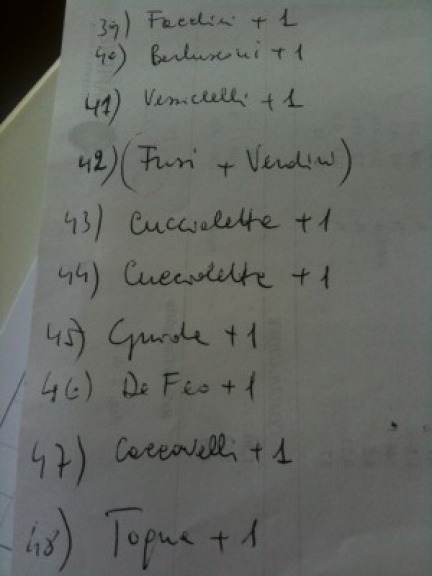 39) Facchini + 1
40) Berlusconi + 1
41) Vessichelli + 1
42) (Fusi + Verdini)
43) Cucciolette + 1
44) Cucciolette + 1
45) Guide + 1
46) De Feo + 1
47) Coccovelli + 1
48) Togna + 1